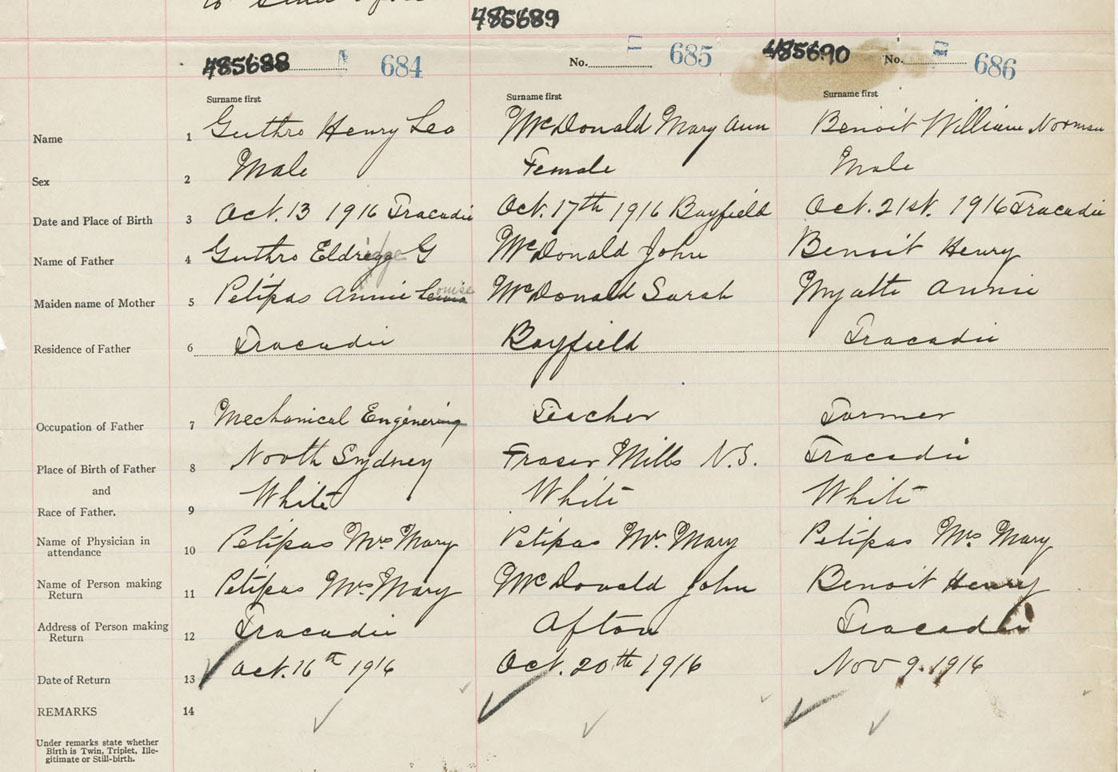 485689
485688 684
No. 685
485690 No. 686
Surname first Surname first Surname first
Name 1 Guthro Henry Leo McDonald Mary Ann Benoit William Norman
Sex 2 Male Female Male
Date and Place of Birth 3 Oct. 13 1916 Tracadie Oct. 17th 1916 Bayfield Oct. 21st. 1916 Tracadie
Name of Father 4 Guthro G McDonald John Benoit Henry
Maiden name of Mother 5 Petipas Annie Louise McDonald Sarah Myatte Annie
Residence of Father 6 Tracadie Bayfield Tracadie
Occupation of Father 7 Mechanical Enginering Teacher Farmer
Place of Birth of Father 8 North Sydney Fraser Mills N.S. Tracadie
and
Race of Father. 9 White White White
Name of Physician in attendance 10 Petipas Mrs Mary Petipas Mr. Mary Petipas Mrs Mary
Name of Person making Return 11 Petipas Mrs Mary McDonald John Benoit Henry
Address of Person making Return 12 Tracadie Afton Tracadie
Date of Return 13 Oct. 16th 1916 Oct. 20th 1916 Nov 9. 1916
REMARKS 14
Under remarks state whether
Birth is Twin, Triplet, Ille-
gitimate or Still-birth.